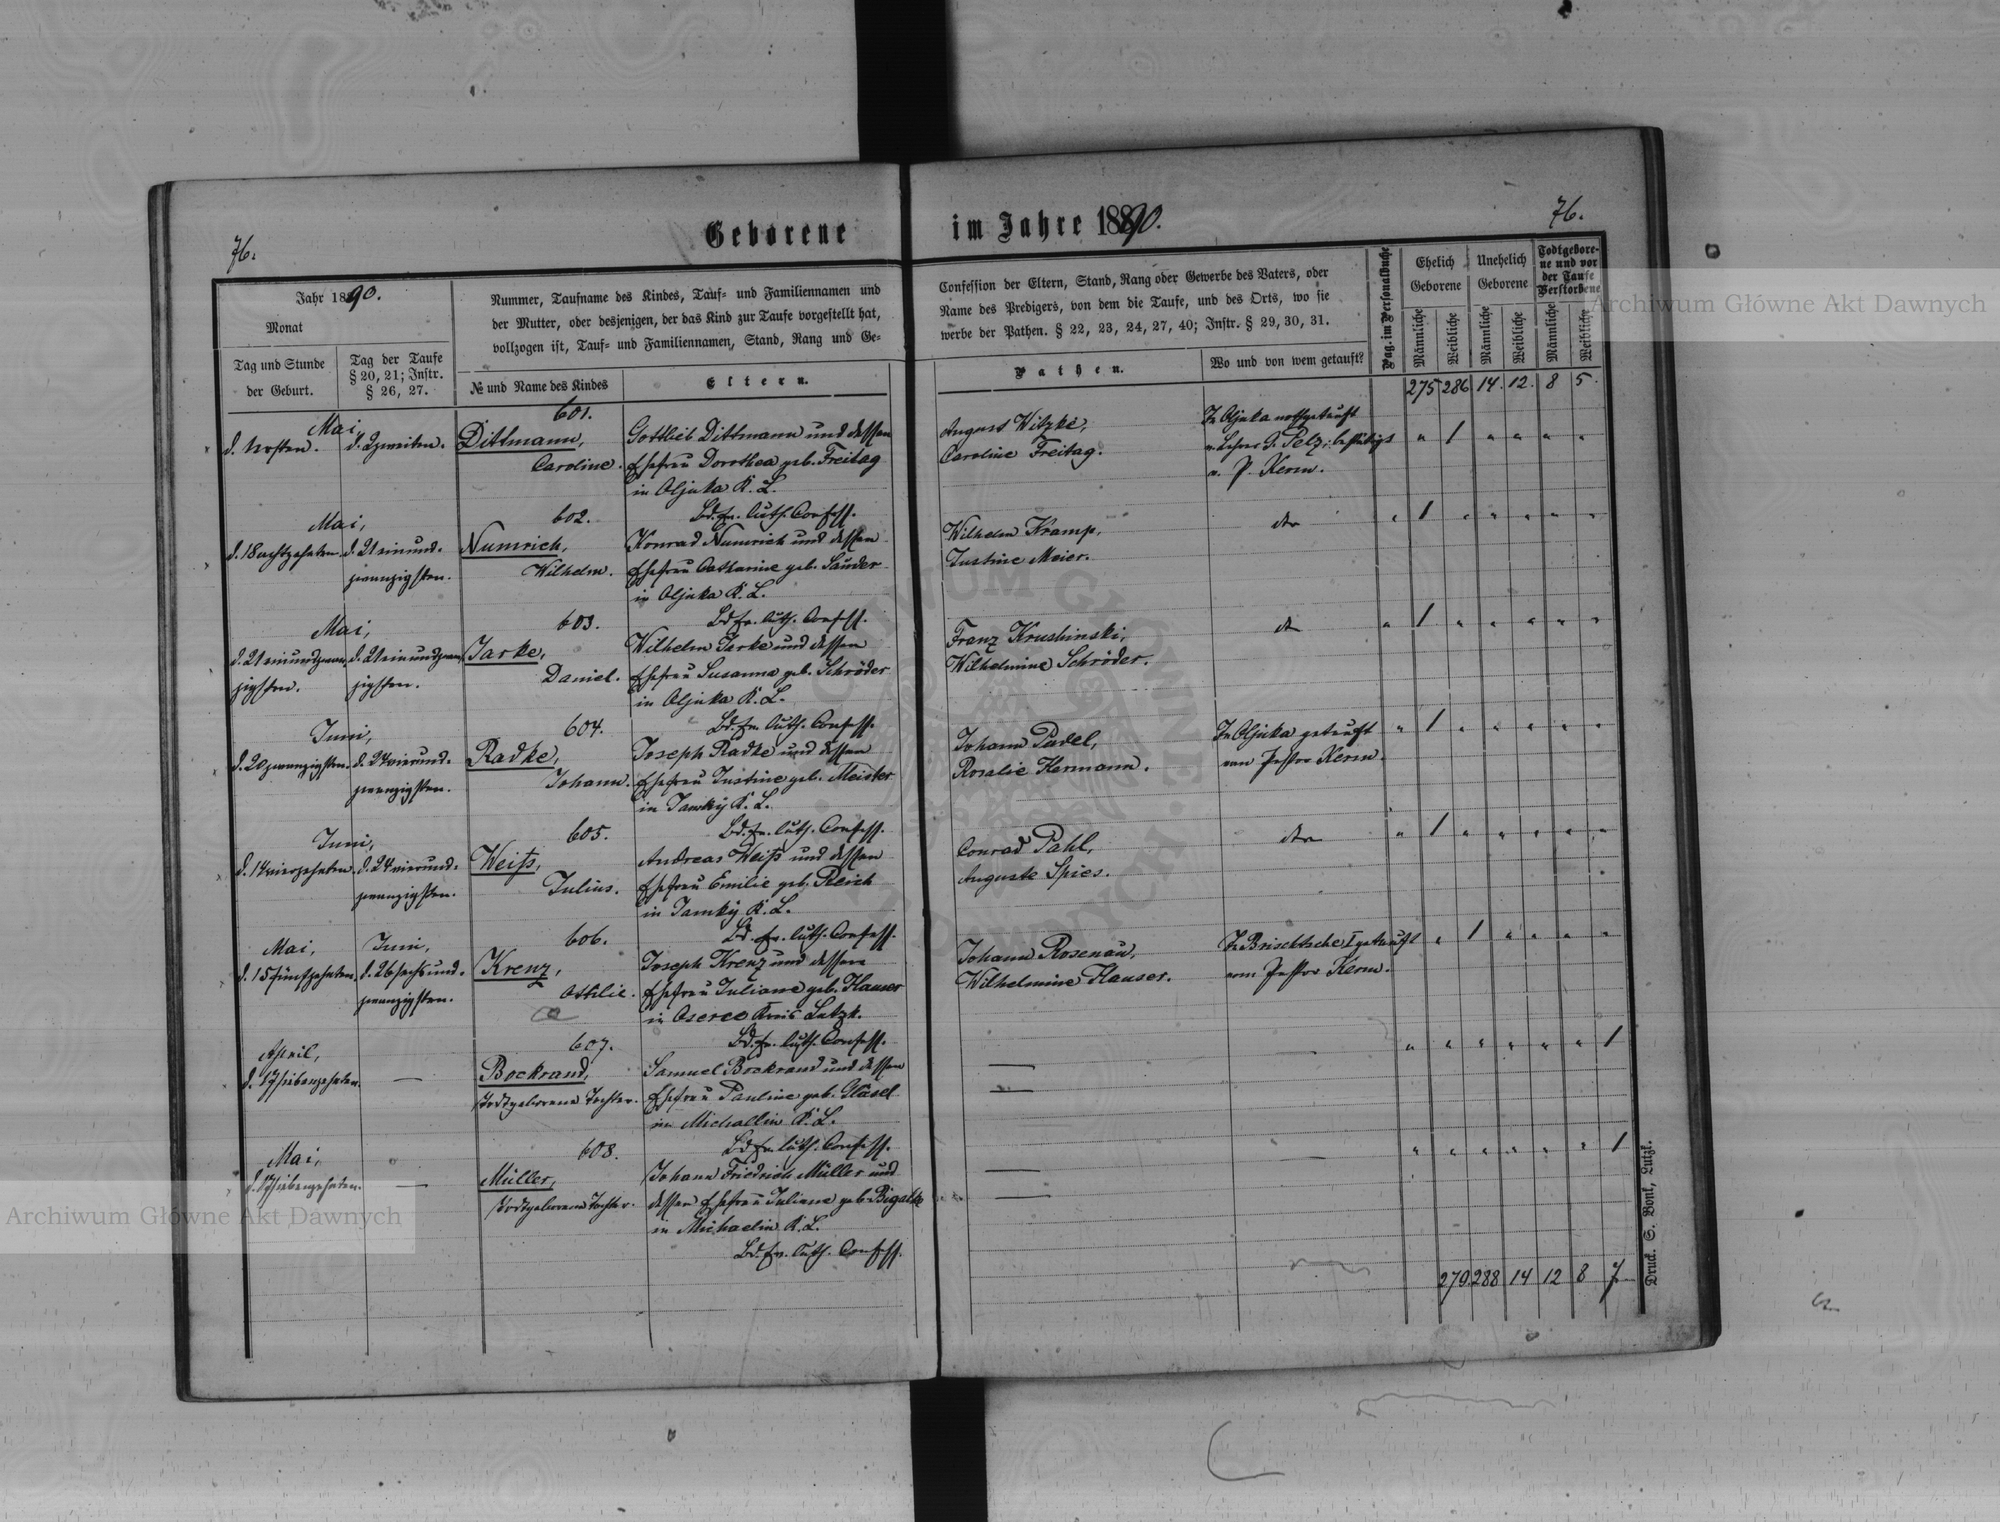 76.
Geborene
im Jahre 1890.
76.
Jahr 1890.
Monat
Tag und Stunde
der Geburt.
Tag der Taufe
§ 20, 21; Instr.
§ 26, 27.
Nummer, Taufname des Kindes, Tauf- und Familiennamen und
der Mutter, oder desjenigen, der das Kind zur Taufe vorgestellt hat,
vollzogen ist, Tauf- und Familiennamen, Stand, Rang und Ge-
№ und Name des Kindes
Eltern.
Confession der Eltern, Stand, Rang oder Gewerbe des Vaters, oder
Name des Predigers, von dem die Taufe, und des Orts, wo sie
werbe der Pathen. § 22, 23, 24, 27, 40; Instr. § 29, 30, 31.
Pathen.
Wo und von wem getauft?
Pag. im Personalbuche
Ehelich
Geborene
Unehelich
Geborene
Todtgebore-
ne und vor
der Taufe
Verstorbene
Männliche
Weibliche
Männliche
Weibliche
Männliche
Weibliche
275 286 14. 12. 8 5.
Mai,
d. 1 ersten.
d. 2 zweiten.
601.
Dittmann,
Caroline.
Gottlieb Dittmann und dessen
Ehefrau Dorothea geb. Freitag
in Oljuka K. L.
Bd. ev. luth. Confess.
August Witzke,
Caroline Freitag.
In Oljuka nothgetauft
v. Lehrer G. Pelz; bestätigt
v. P. Kerm.
" 1 " " " "
Mai,
d. 18 achtzehnten.
d. 21 einund-
zwanzigsten.
602.
Numrich,
Wilhelm.
Konrad Numrich und dessen
Ehefrau Catharine geb. Sauder
in Oljuka K. L.
Bd. ev. luth. Confess.
Wilhelm Kramp,
Justine Meier.
dto
" 1 " " " " "
Mai,
d. 21 einundzwan-
zigsten.
d. 21 einundzwan-
zigsten.
603.
Jarke,
Daniel.
Wilhelm Jarke und dessen
Ehefrau Susanna geb. Schröder
in Oljuka K. L.
Bd. ev. luth. Confess.
Franz Krushinski,
Wilhelmine Schröder.
dto
" 1 " " " " "
Juni,
d. 20 zwanzigsten.
d. 24 vierund-
zwanzigsten.
604.
Radke,
Johann.
Joseph Radke und dessen
Ehefrau Justine geb. Meister
in Jamky K. L.
Bd. ev. luth. Confess.
Johann Padel,
Rosalie Hermann.
In Oljuka getauft
vom Pastor Kerm.
" 1 " " " " "
Juni,
d. 14 vierzehnten.
d. 24 vierund-
zwanzigsten.
605.
Weiß,
Julius.
Andreas Weiß und dessen
Ehefrau Emilie geb. Reich
in Jamky K. L.
Bd. ev. luth. Confess.
Conrad Pahl,
Auguste Spies.
dto
" 1 " " " " "
Mai,
d. 15 fünfzehnten.
Juni,
d. 26 sechsund-
zwanzigsten.
606.
Krenz,
Ottilie.
Joseph Krenz und dessen
Ehefrau Juliane geb. Hauser
in Oserco Kreis Lutzk.
Bd. ev. luth. Confess.
Johann Rosenau,
Wilhelmine Hauser.
In Brischtsche I getauft
vom Pastor Kerm.
" 1 " " " "
April,
d. 17 siebenzehnten.
—
607.
Bockrand,
todtgeborene Tochter.
Samuel Bockrand und dessen
Ehefrau Pauline geb. Gläsel
in Michallin K. L.
Bd. ev. luth. Confess.
—
—
" " " " " " 1
Mai,
d. 17 siebenzehnten.
—
608.
Müller,
todtgeborene Tochter.
Johann Friedrich Müller und
dessen Ehefrau Juliane geb. Bigalke
in Michaelin K. L.
Bd. ev. luth. Confess.
—
—
" " " " " " 1
279. 288 14 12 8 7
Druck. S. Bonk, Lutzk.
Archiwum Główne Akt Dawnych
Archiwum Główne Akt Dawnych
ARCHIWUM GŁÓWNE AKT DAWNYCH